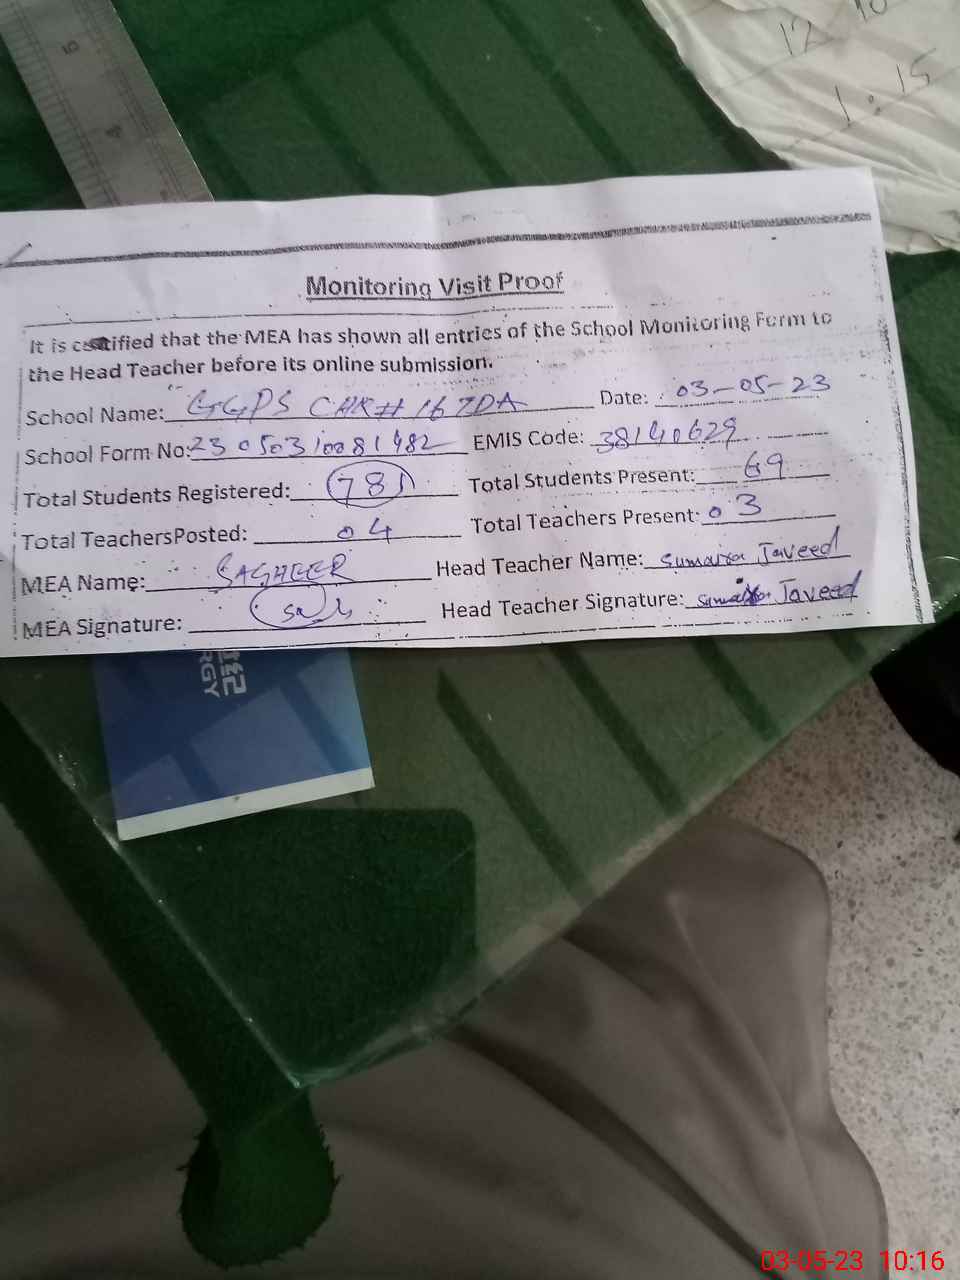 5
4
12 10
1:15
Monitoring Visit Proof
It is certified that the MEA has shown all entries of the School Monitoring Form to
the Head Teacher before its online submission.
School Name: GGPS CHK# 167DA Date: 03-05-23
School Form No: 23050310081482 EMIS Code: 38140629
Total Students Registered: 78 Total Students Present: 69
Total TeachersPosted: 04 Total Teachers Present: 03
MEA Name: SAGHEER Head Teacher Name: Sumaira Javeed
MEA Signature: Head Teacher Signature: Sumaira Javeed
RGY
03-05-23 10:16